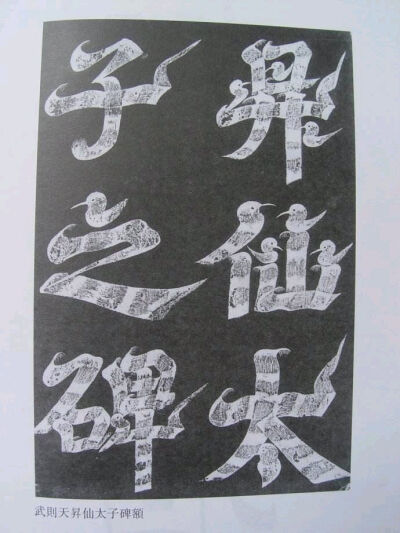 昇仙太
子之碑
武則天昇仙太子碑額